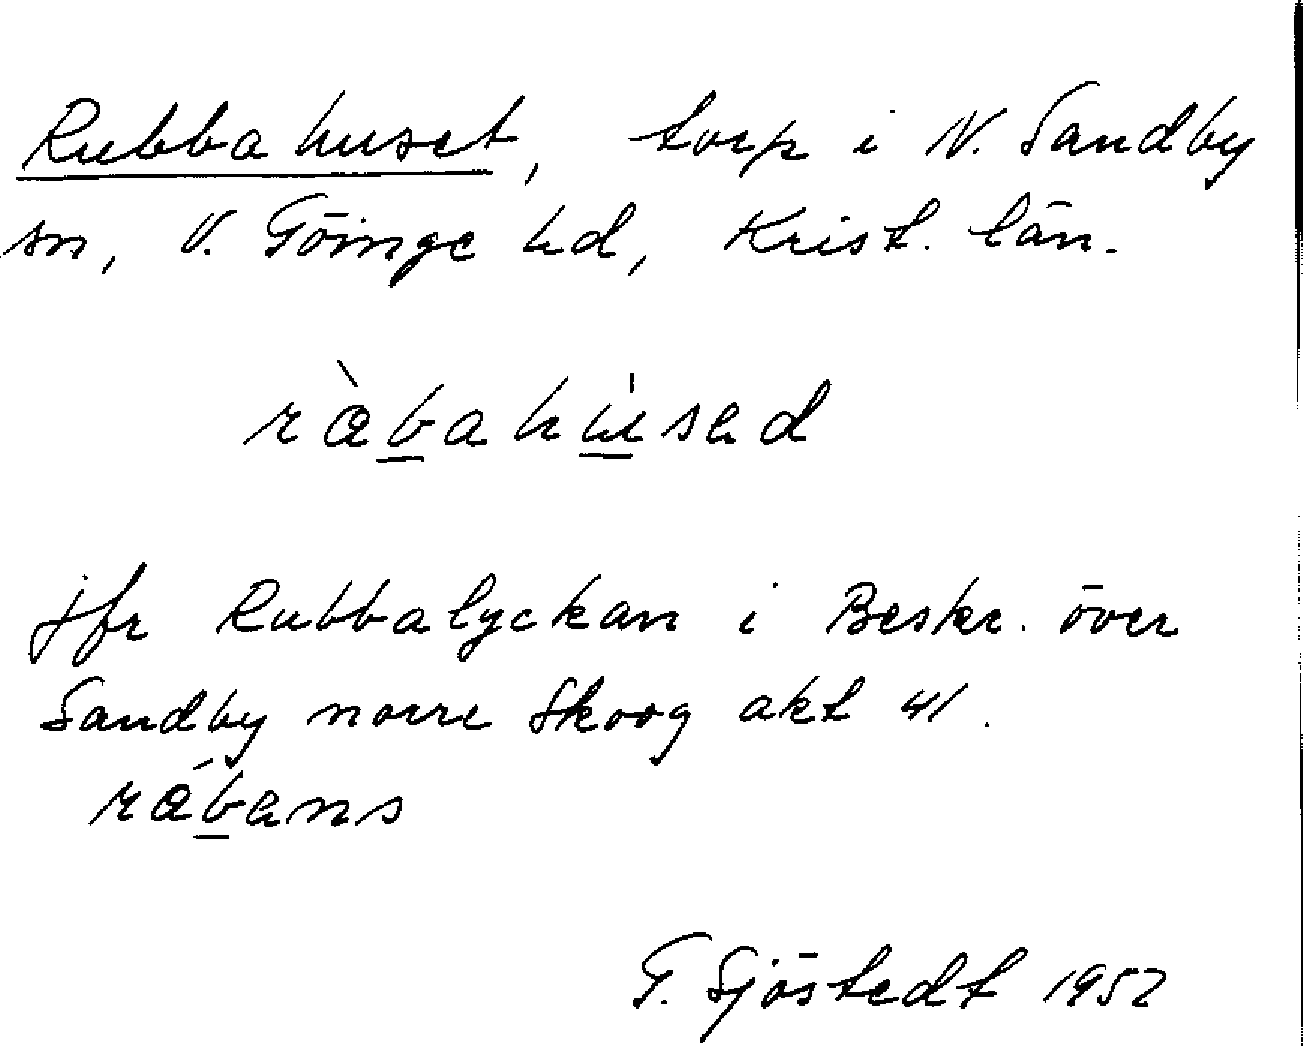 Rubbahuset, torp i N. Sandby
sn, V. Göinge hd, Krist. län.
ràbahúsad
jfr Rubbalyckan i Beskr. över
Sandby norre Skoog akt 41.
rábans
G. Sjöstedt 1952